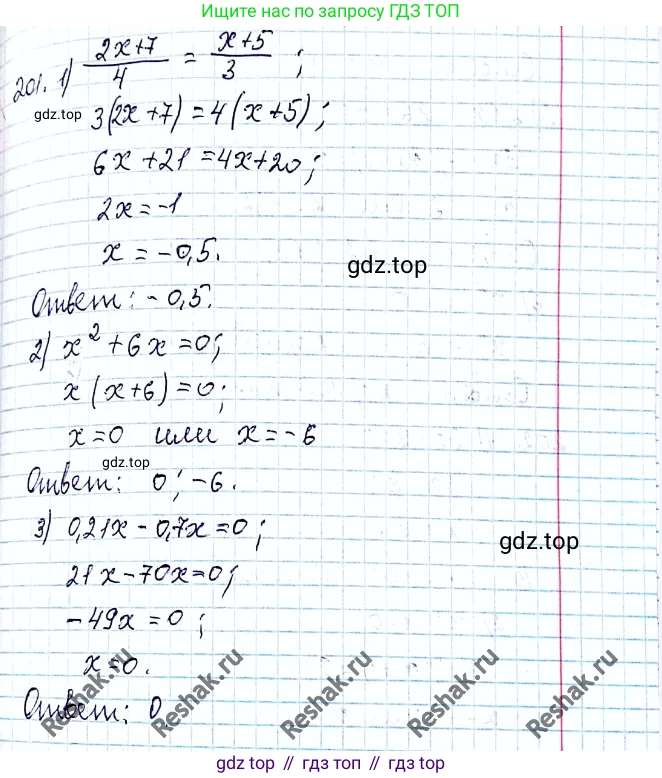 Ищите нас по запросу ГДЗ ТОП
201. 1) (2x+7)/4 = (x+5)/3 ;
gdz.top
3(2x+7)=4(x+5);
6x+21=4x+20;
2x=-1
x=-0,5.
gdz.top
Ответ: -0,5.
2) x²+6x=0;
x(x+6)=0;
x=0 или x=-6
gdz.top
Ответ: 0; -6.
3) 0,21x-0,7x=0;
gdz.top
21x-70x=0;
-49x=0;
x=0.
Ответ: 0.
Reshak.ru Reshak.ru Reshak.ru Reshak.ru Reshak.ru
gdz.top // гдз топ // gdz.top